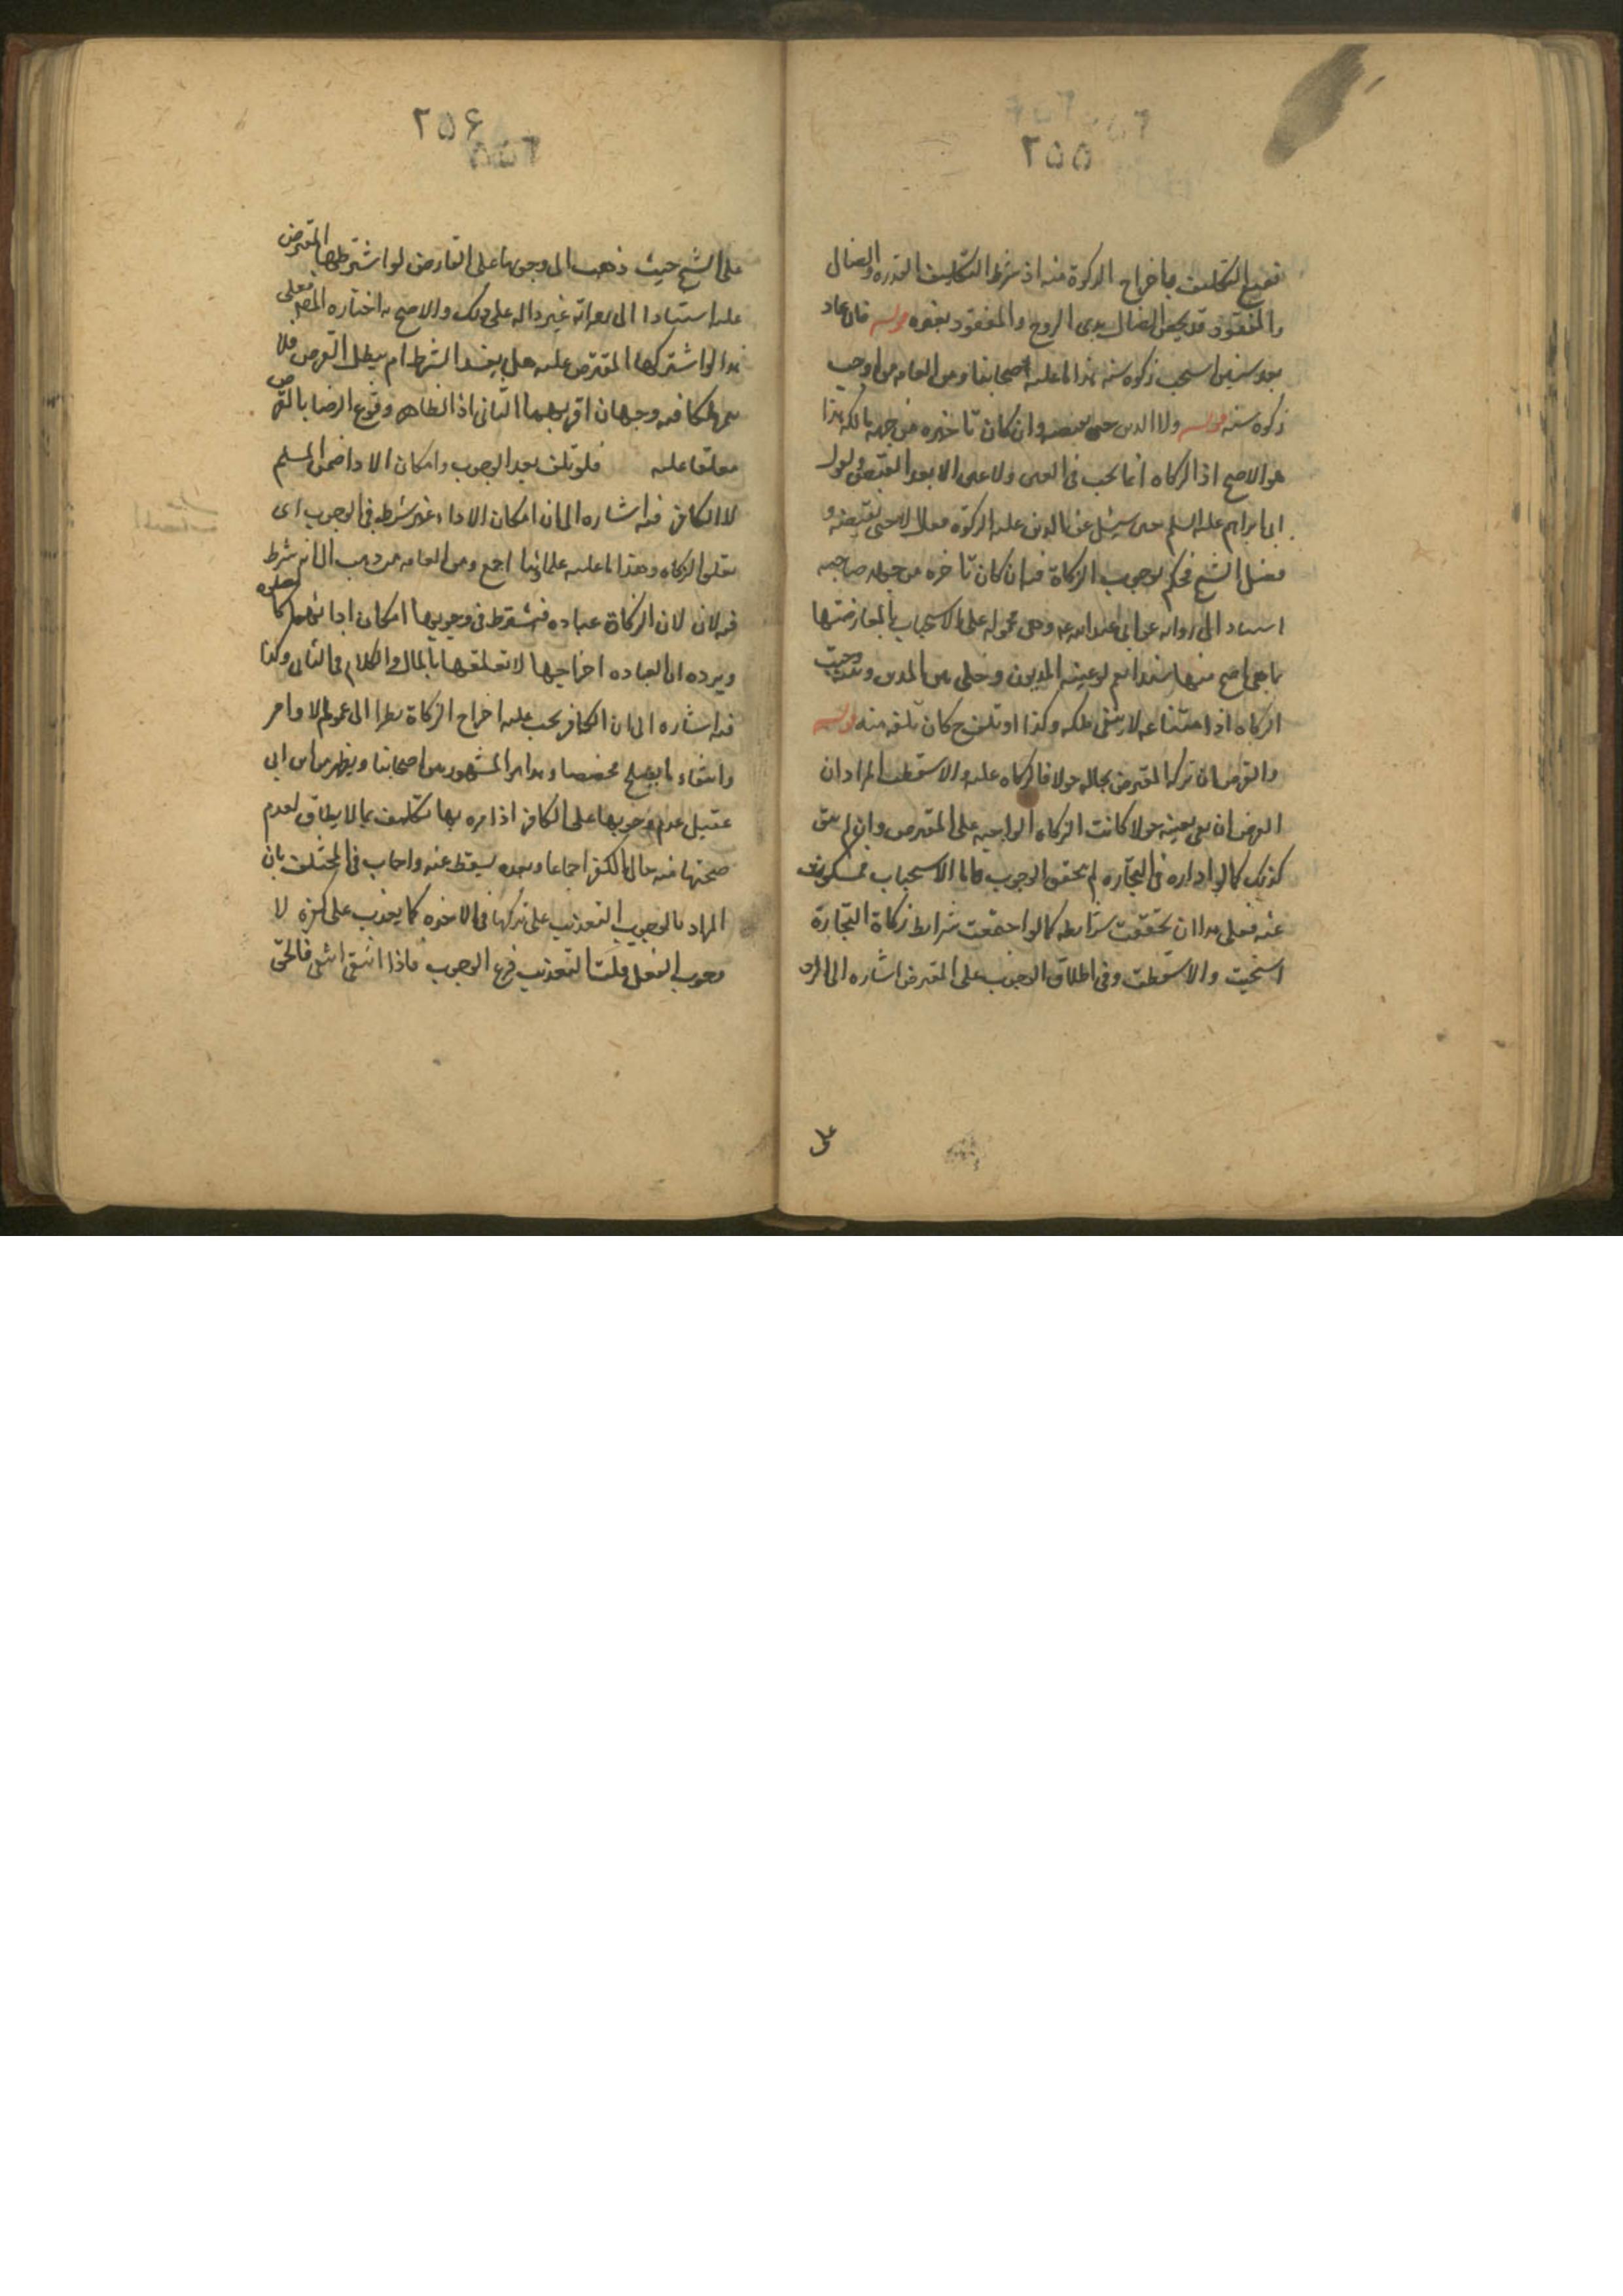 ٢٥٥
التكليف باخراج الزكوة منه اذ شرط التكليف القدره والضال
والمفقود قد يخص الضال بذى الروح والمفقود بغيره قوله فان عاد
بعد سنين استحب زكوه سنه هذا ما عليه اصحابنا ومن العامه من اوجب
زكوه سنه قوله ولا الدين حتى يقبضه وان كان تاخيره من جهة مالكه هذا
هو الاصح اذ الزكاه انما تجب فى العين ولا عين الا بعد القبض ولقول
ابى ابراهيم عليه السلم حين سئل عن الدين عليه الزكوة فقال لا حتى يقبضه و
فصل الشيخ فحكم بوجوب الزكاة فيه ان كان تاخره من جهة صاحبه
استنادا الى روايه عن ابى عبد الله ع وهى محموله على الاستحباب لمعارضتها
ما هى اصح منها سندا نعم لو عينه المديون وخلى بين المدين وبينه وجبت
الزكاه اذ امتناعه لا ينفى ملكه وكذا لو تلف ح كان تلفه منه قوله
والقرض ان تركه المقترض بحاله حولا فالزكاه عليه والا سقطت المراد ان
القرض ان بقى بعينه حولا كانت الزكاه الواجبه على المقترض وان لم يبق
كذلك كما لو اداره فى التجاره لم يتحقق الوجوب فاما الاستحباب فمسكوت
عنه فعلى هذا ان تحققت شرايطه كما لو اجتمعت شرايط زكاة التجارة
استحبت والا سقطت وفى اطلاق الوجوب على المقترض اشاره الى الرد
على
٢٥۶
على الشيخ حيث ذهب الى وجوبها على القارض لو اشترطها المقترض
عليه استنادا الى روايه غير داله على ذلك والاصح ما اختاره المص فعلى
هذا لو اشتركها المقترض عليه هل يفسد الشرط ام يبطل القرض فلا
يملكه فيه وجهان اقربهما الثانى اذ الظاهر وقوع الرضا بالقرض
معلقا عليه فلو تلف بعد الوجوب وامكان الادا ضمن المسلم
لا الكافر فيه اشاره الى ان امكان الاداء غير شرط فى الوجوب اى
تعلق الزكاه وهذا ما عليه علمائنا اجمع ومن العامه من ذهب الى انه شرط
فيه لان الزكاة عباده فيشترط فى وجوبها امكان ادائها كالصلوه
ويرده ان العباده اخراجها لا تعلقها بالمال والكلام فى الثانى وكذا
فيه اشاره الى ان الكافر يجب عليه اخراج الزكاة نظرا الى عموم الاوامر
وانتفاء ما يصلح مخصصا وهذا هو المشهور بين اصحابنا ويظهر من ابن ابى
عقيل عدم وجوبها على الكافر اذ امره بها تكليف بما لا يطاق لعدم
صحتها منه حال الكفر اجماعا وبعده يسقط عنه واجاب فى المختلف بان
المراد بالوجوب التعذيب على تركها فى الاخره كما يعذب على كفره لا
وجوب الفعل قلت التعذيب فرع الوجوب فاذا انتفى انتفى فالحق